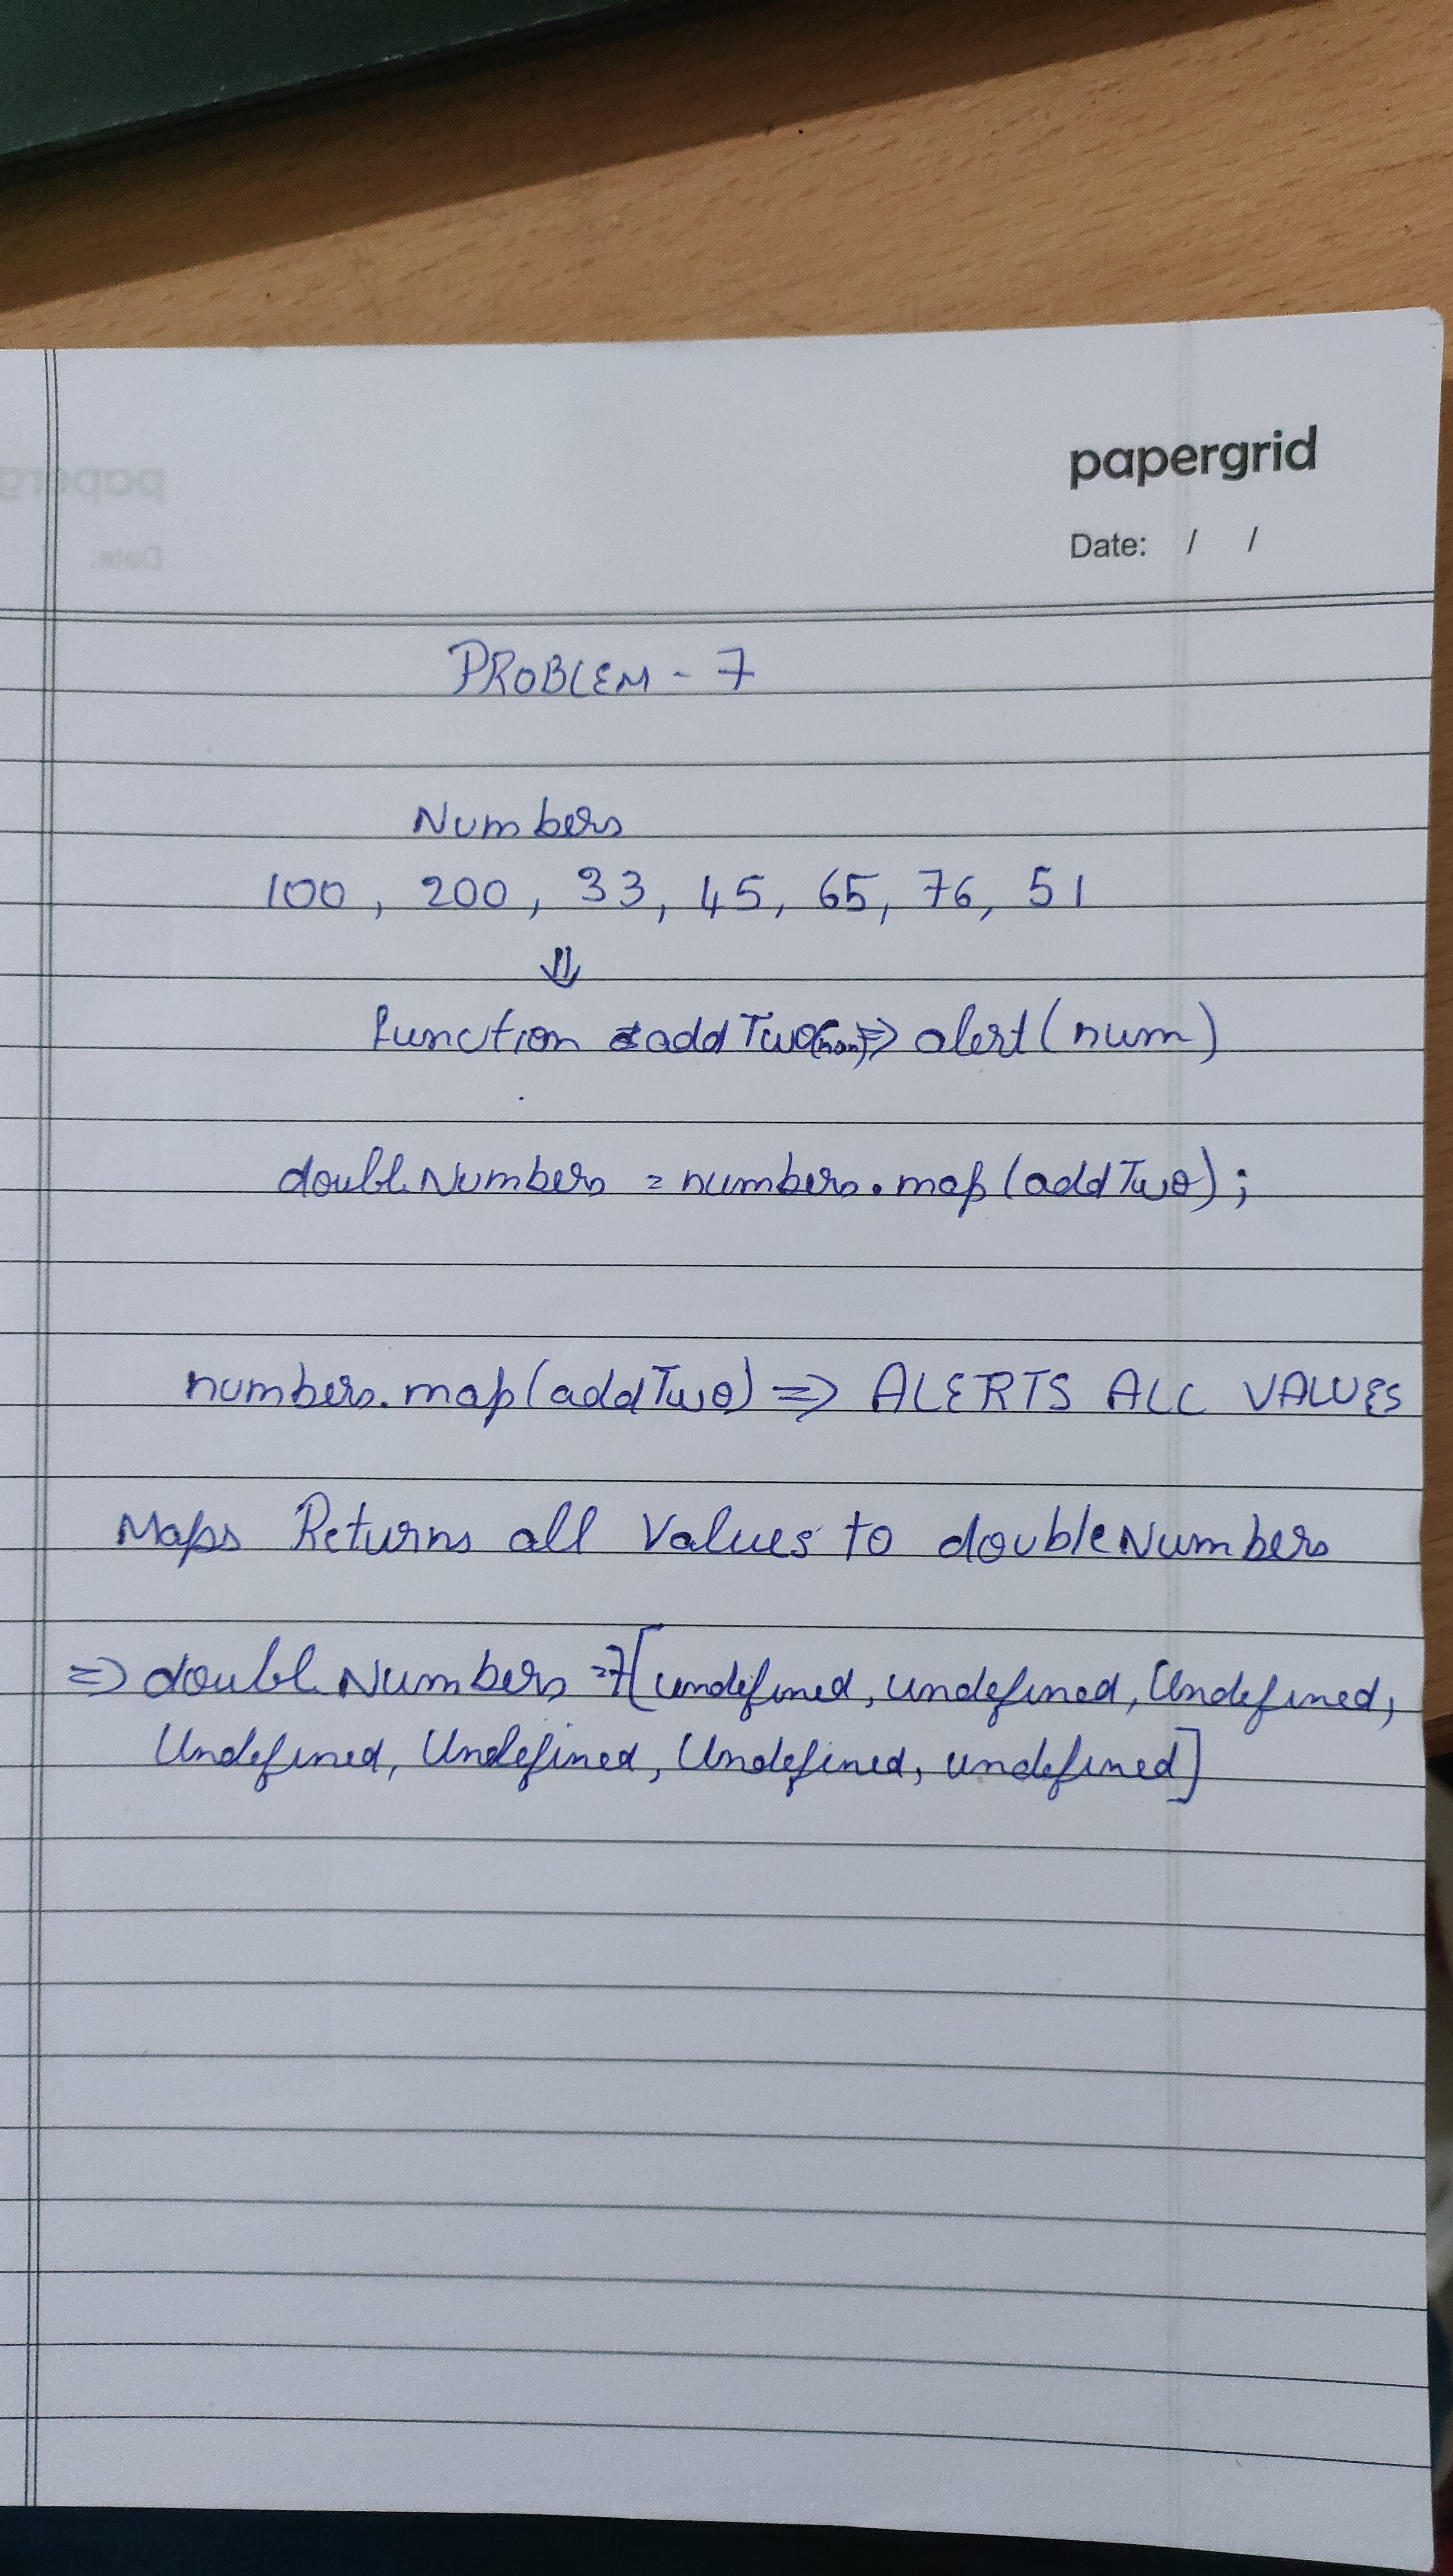 papergrid
Date: / /
PROBLEM - 7
Numbers
100, 200, 33, 45, 65, 76, 51
⇓
function addTwo(num) => alert(num)
doubleNumbers = numbers.map(addTwo);
numbers.map(addTwo) => ALERTS ALL VALUES
Maps Returns all Values to doubleNumbers
=> doubleNumbers => [undefined, undefined, Undefined,
Undefined, Undefined, Undefined, undefined]